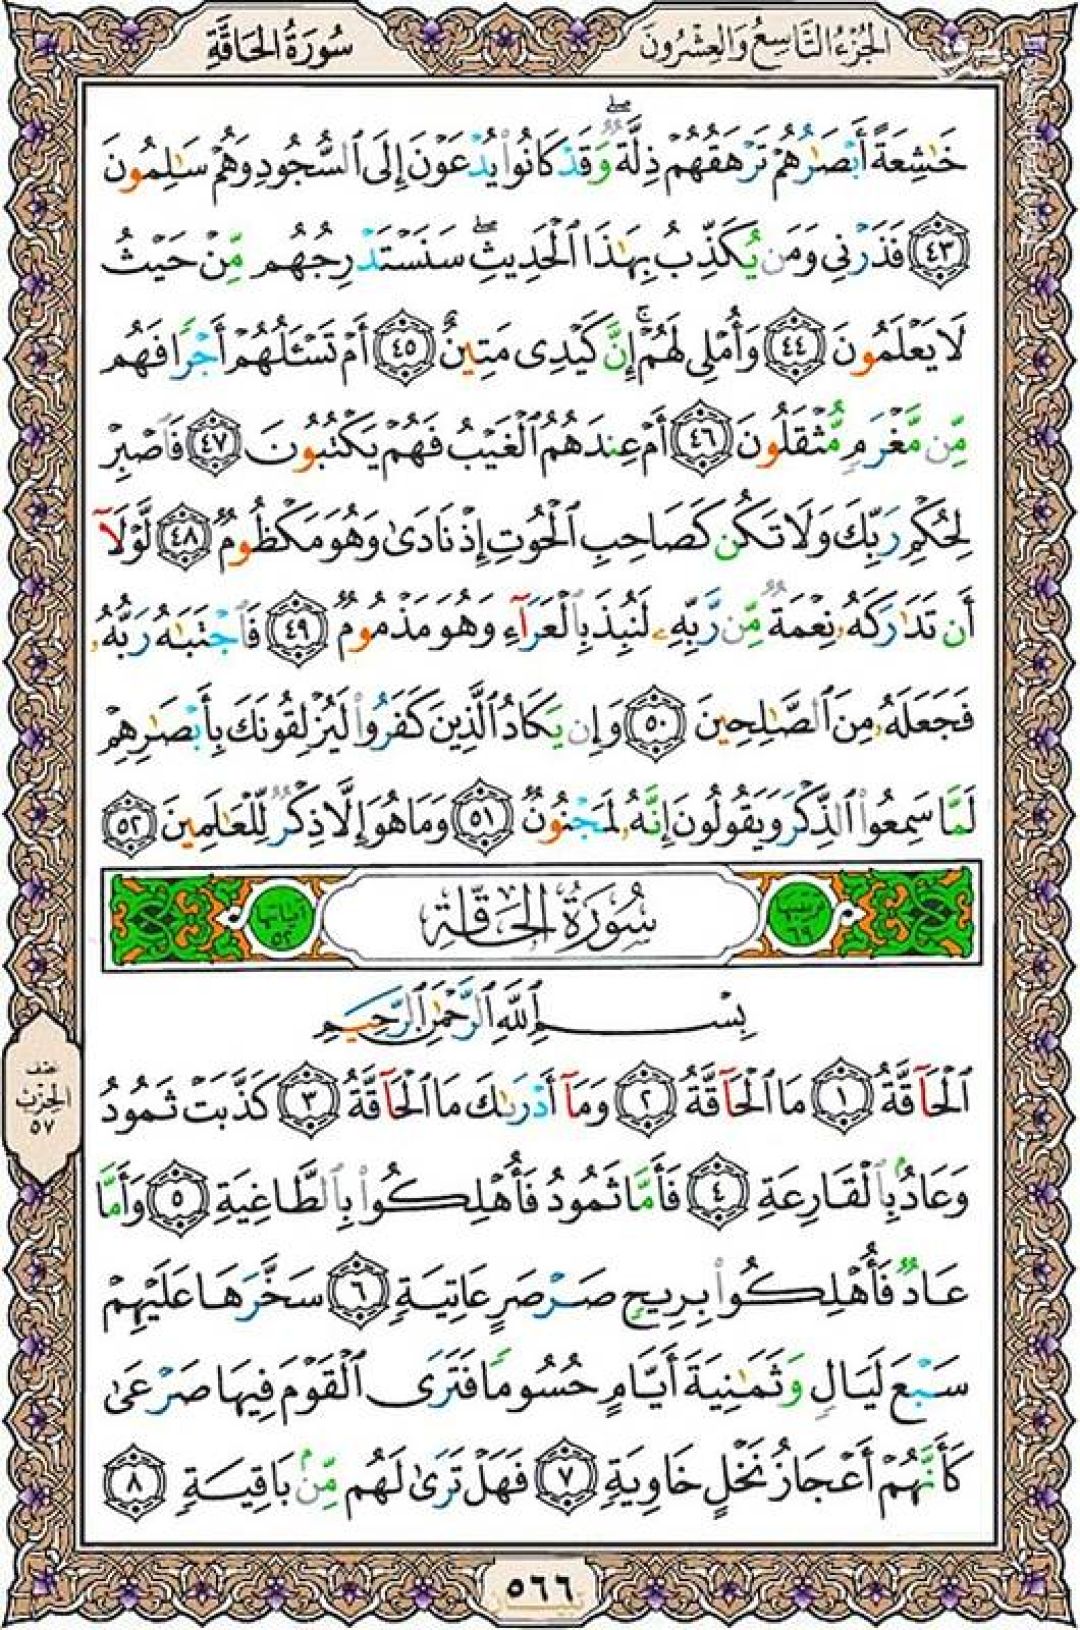 الجُزْءُ التَّاسِعُ وَالعِشْرُونَ
سُورَةُ الحَاقَّةِ
خَٰشِعَةً أَبْصَٰرُهُمْ تَرْهَقُهُمْ ذِلَّةٌۖ وَقَدْ كَانُوا۟ يُدْعَوْنَ إِلَى ٱلسُّجُودِ وَهُمْ سَٰلِمُونَ
﴿٤٣﴾ فَذَرْنِى وَمَن يُكَذِّبُ بِهَٰذَا ٱلْحَدِيثِۖ سَنَسْتَدْرِجُهُم مِّنْ حَيْثُ
لَا يَعْلَمُونَ ﴿٤٤﴾ وَأُمْلِى لَهُمْۚ إِنَّ كَيْدِى مَتِينٌ ﴿٤٥﴾ أَمْ تَسْـَٔلُهُمْ أَجْرًا فَهُم
مِّن مَّغْرَمٍ مُّثْقَلُونَ ﴿٤٦﴾ أَمْ عِندَهُمُ ٱلْغَيْبُ فَهُمْ يَكْتُبُونَ ﴿٤٧﴾ فَٱصْبِرْ
لِحُكْمِ رَبِّكَ وَلَا تَكُن كَصَاحِبِ ٱلْحُوتِ إِذْ نَادَىٰ وَهُوَ مَكْظُومٌ ﴿٤٨﴾ لَّوْلَآ
أَن تَدَٰرَكَهُۥ نِعْمَةٌ مِّن رَّبِّهِۦ لَنُبِذَ بِٱلْعَرَآءِ وَهُوَ مَذْمُومٌ ﴿٤٩﴾ فَٱجْتَبَٰهُ رَبُّهُۥ
فَجَعَلَهُۥ مِنَ ٱلصَّٰلِحِينَ ﴿٥٠﴾ وَإِن يَكَادُ ٱلَّذِينَ كَفَرُوا۟ لَيُزْلِقُونَكَ بِأَبْصَٰرِهِمْ
لَمَّا سَمِعُوا۟ ٱلذِّكْرَ وَيَقُولُونَ إِنَّهُۥ لَمَجْنُونٌ ﴿٥١﴾ وَمَا هُوَ إِلَّا ذِكْرٌ لِّلْعَٰلَمِينَ ﴿٥٢﴾
ترتيبها ٦٩
سُورَةُ الحَاقَّةِ
آياتها ٥٢
بِسْمِ ٱللَّهِ ٱلرَّحْمَٰنِ ٱلرَّحِيمِ
ٱلْحَآقَّةُ ﴿١﴾ مَا ٱلْحَآقَّةُ ﴿٢﴾ وَمَآ أَدْرَىٰكَ مَا ٱلْحَآقَّةُ ﴿٣﴾ كَذَّبَتْ ثَمُودُ
وَعَادٌۢ بِٱلْقَارِعَةِ ﴿٤﴾ فَأَمَّا ثَمُودُ فَأُهْلِكُوا۟ بِٱلطَّاغِيَةِ ﴿٥﴾ وَأَمَّا
عَادٌ فَأُهْلِكُوا۟ بِرِيحٍ صَرْصَرٍ عَاتِيَةٍ ﴿٦﴾ سَخَّرَهَا عَلَيْهِمْ
سَبْعَ لَيَالٍ وَثَمَٰنِيَةَ أَيَّامٍ حُسُومًا فَتَرَى ٱلْقَوْمَ فِيهَا صَرْعَىٰ
كَأَنَّهُمْ أَعْجَازُ نَخْلٍ خَاوِيَةٍ ﴿٧﴾ فَهَلْ تَرَىٰ لَهُم مِّنۢ بَاقِيَةٍ ﴿٨﴾
نصف
الحزب
٥٧
٥٦٦